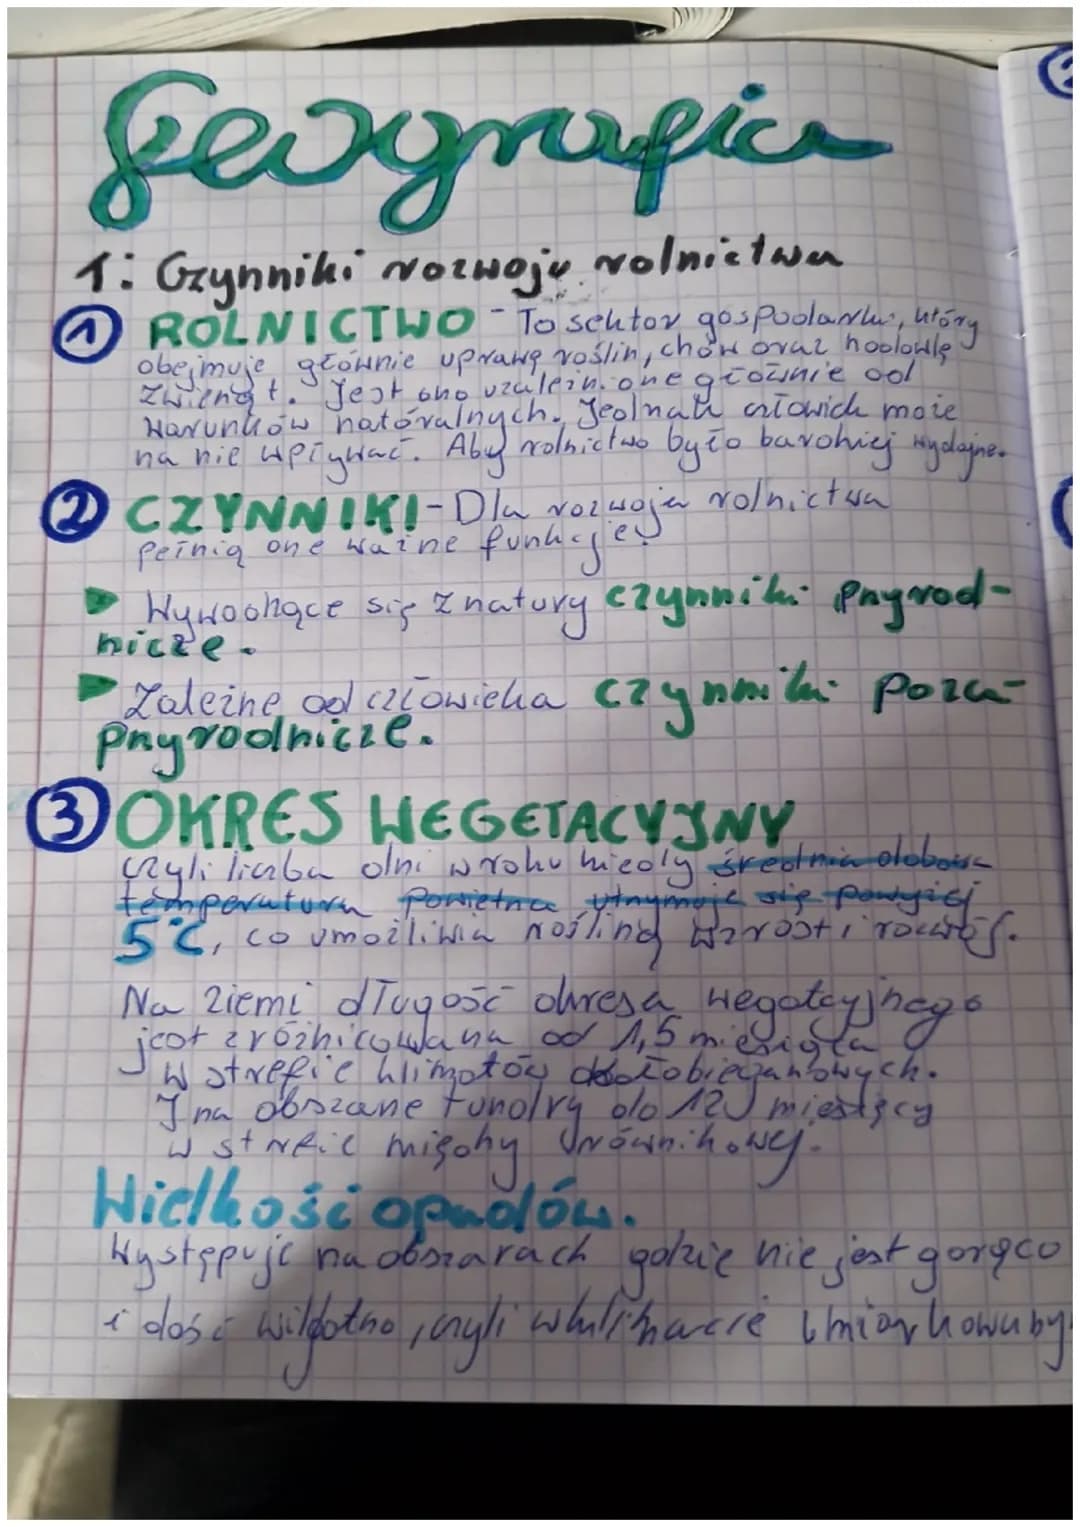 Geografia
1: Czynniki rozwoju rolnictwa
1 ROLNICTWO - To sektor gospodarki, który
obejmuje głównie uprawę roślin, chów oraz hodowlę
zwierząt. Jest ono uzależnione głównie od
warunków natóralnych. Jednak człowiek może
na nie wpływać. Aby rolnictwo było bardziej wydajne.
2 CZYNNIKI - Dla rozwoju rolnictwa
pełnią one ważne funkcje:
Wywodzące się z natury czynniki przyrod-
nicze.
Zależne od człowieka czynniki poza-
przyrodnicze.
3 OKRES WEGETACYJNY
czyli liczba dni w roku kiedy średnia dobowa
temperatura powietrza utrzymuje się powyżej
5°C, co umożliwia rośliną wzrost i rozwój.
Na ziemi długość okresa wegetacyjnego
jest zróżnicowana od 1,5 miesiąca
w strefie klimatów okołobiegunowych.
I na obszarze tundry do 12 miesięcy
w strefie między równikowej.
Wielkość opadów.
Występuje na obszarach gdzie nie jest gorąco
i dość wilgotno, czyli w klimacie umiarkowany